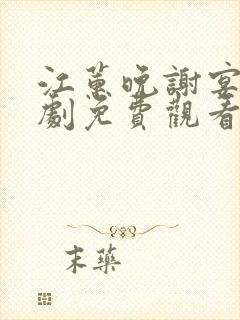 江蕙晚謝宴
劇免費觀看
末藥